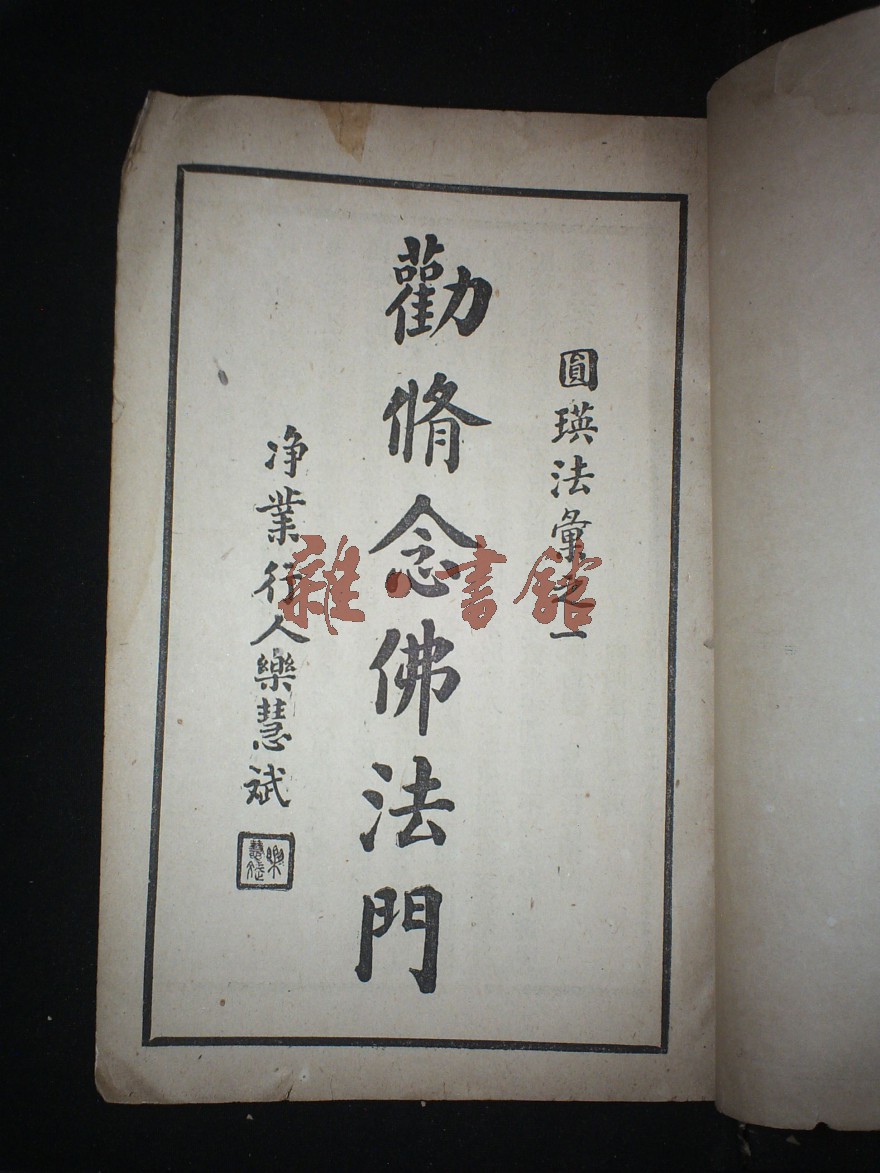 圓瑛法彙之一
勸脩念佛法門
净業行人樂慧斌
樂慧斌
雜·書館